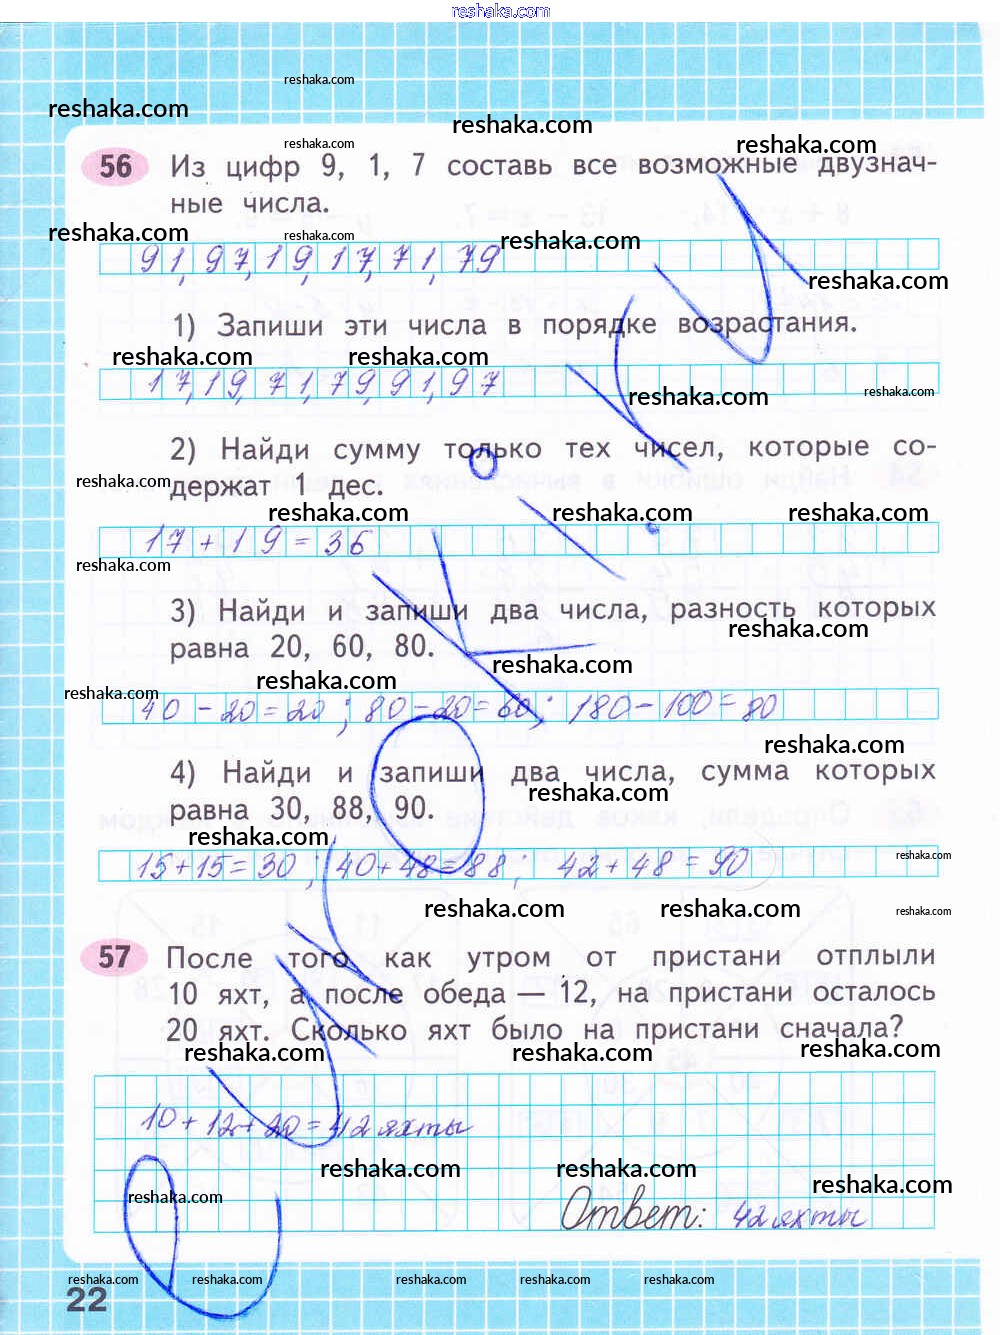 reshaka.com
reshaka.com
reshaka.com
reshaka.com
reshaka.com
reshaka.com
56 Из цифр 9, 1, 7 составь все возможные двузнач-
ные числа.
reshaka.com
reshaka.com
reshaka.com
91, 97, 19, 17, 71, 79
reshaka.com
1) Запиши эти числа в порядке возрастания.
reshaka.com
reshaka.com
17, 19, 71, 79, 91, 97
reshaka.com
reshaka.com
2) Найди сумму только тех чисел, которые со-
держат 1 дес.
reshaka.com
reshaka.com
reshaka.com
reshaka.com
17 + 19 = 36
reshaka.com
3) Найди и запиши два числа, разность которых
равна 20, 60, 80.
reshaka.com
reshaka.com
reshaka.com
reshaka.com
40 - 20 = 20 ; 80 - 20 = 60 ; 180 - 100 = 80
reshaka.com
4) Найди и запиши два числа, сумма которых
равна 30, 88, 90.
reshaka.com
reshaka.com
15 + 15 = 30 , 40 + 48 = 88 ; 42 + 48 = 90
reshaka.com
reshaka.com
reshaka.com
reshaka.com
57 После того как утром от пристани отплыли
10 яхт, а после обеда — 12, на пристани осталось
20 яхт. Сколько яхт было на пристани сначала?
reshaka.com
reshaka.com
reshaka.com
10 + 12 + 20 = 42 яхты
reshaka.com
reshaka.com
reshaka.com
reshaka.com
Ответ: 42 яхты
reshaka.com
reshaka.com
reshaka.com
reshaka.com
reshaka.com
22